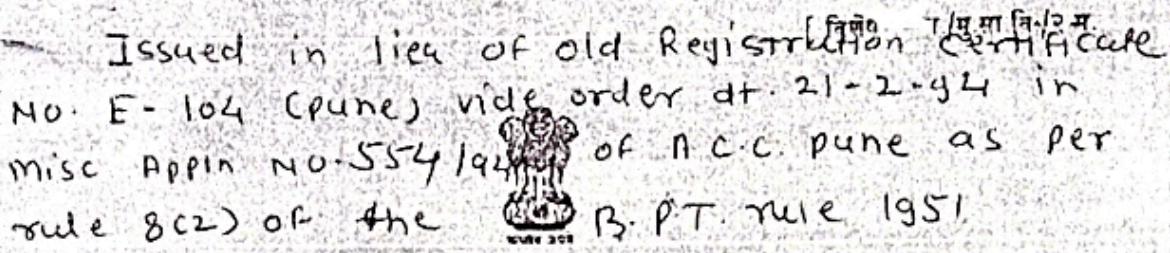 Issued in lieu of old Registration Certificate
No. E-104 (Pune) vide order dt. 21-2-94 in
misc Appln No. 554/94 of A C.C. pune as per
rule 8(2) of the B. P.T. rule 1951